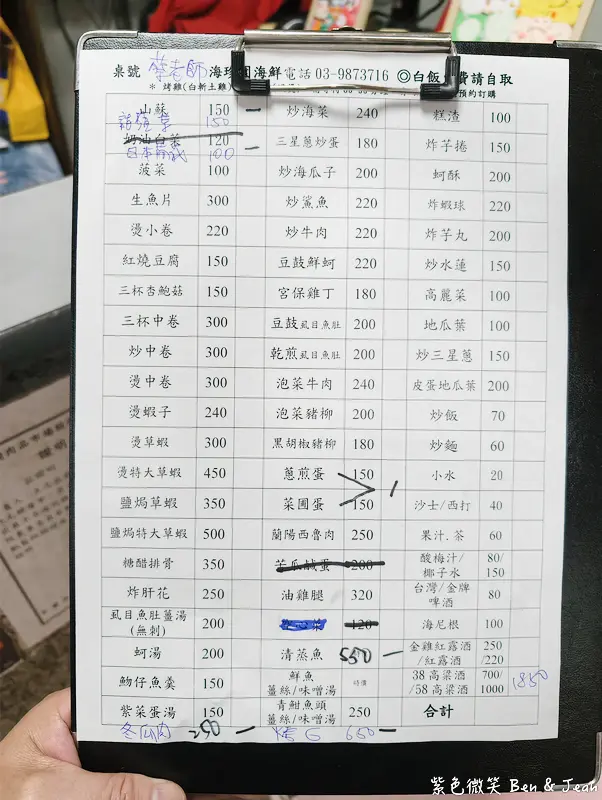 桌號 蔡老師 海珍園海鮮 電話 03-9873716 ◎白飯免費請自取
* 烤雞(白斬土雞) 預約訂購
山蘇 150 一 炒海菜 240 糕渣 100
150
奶油白菜 120 一 三星蔥炒蛋 180 炸芋捲 150
100
菠菜 100 炒海瓜子 200 蚵酥 200
生魚片 300 炒鯊魚 220 炸蝦球 220
燙小卷 220 炒牛肉 220 炸芋丸 200
紅燒豆腐 150 豆鼓鮮蚵 220 炒水蓮 150
三杯杏鮑菇 150 宮保雞丁 180 高麗菜 100
三杯中卷 300 豆鼓虱目魚肚 200 地瓜葉 100
炒中卷 300 乾煎虱目魚肚 200 炒三星蔥 150
燙中卷 300 泡菜牛肉 240 皮蛋地瓜葉 200
燙蝦子 240 泡菜豬柳 200 炒飯 70
燙草蝦 300 黑胡椒豬柳 180 炒麵 60
燙特大草蝦 450 蔥煎蛋 150 小水 20
鹽焗草蝦 350 菜圃蛋 150 沙士/西打 40
鹽焗特大草蝦 500 蘭陽西魯肉 250 果汁.茶 60
糖醋排骨 350 苦瓜鹹蛋 200 酸梅汁/椰子水 80/150
炸肝花 250 油雞腿 320 台灣/金牌啤酒 80
虱目魚肚薑湯(無刺) 200 120 海尼根 100
蚵湯 200 清蒸魚 550 一 金雞紅露酒/紅露酒 250/220
魩仔魚羹 150 鮮魚薑絲/味噌湯 特價 38高粱酒/58高粱酒 700/1000 1850
紫菜蛋湯 150 青魽魚頭薑絲/味噌湯 250 合計
冬瓜肉 250 一 烤G 650 一
紫色微笑 Ben & Jean